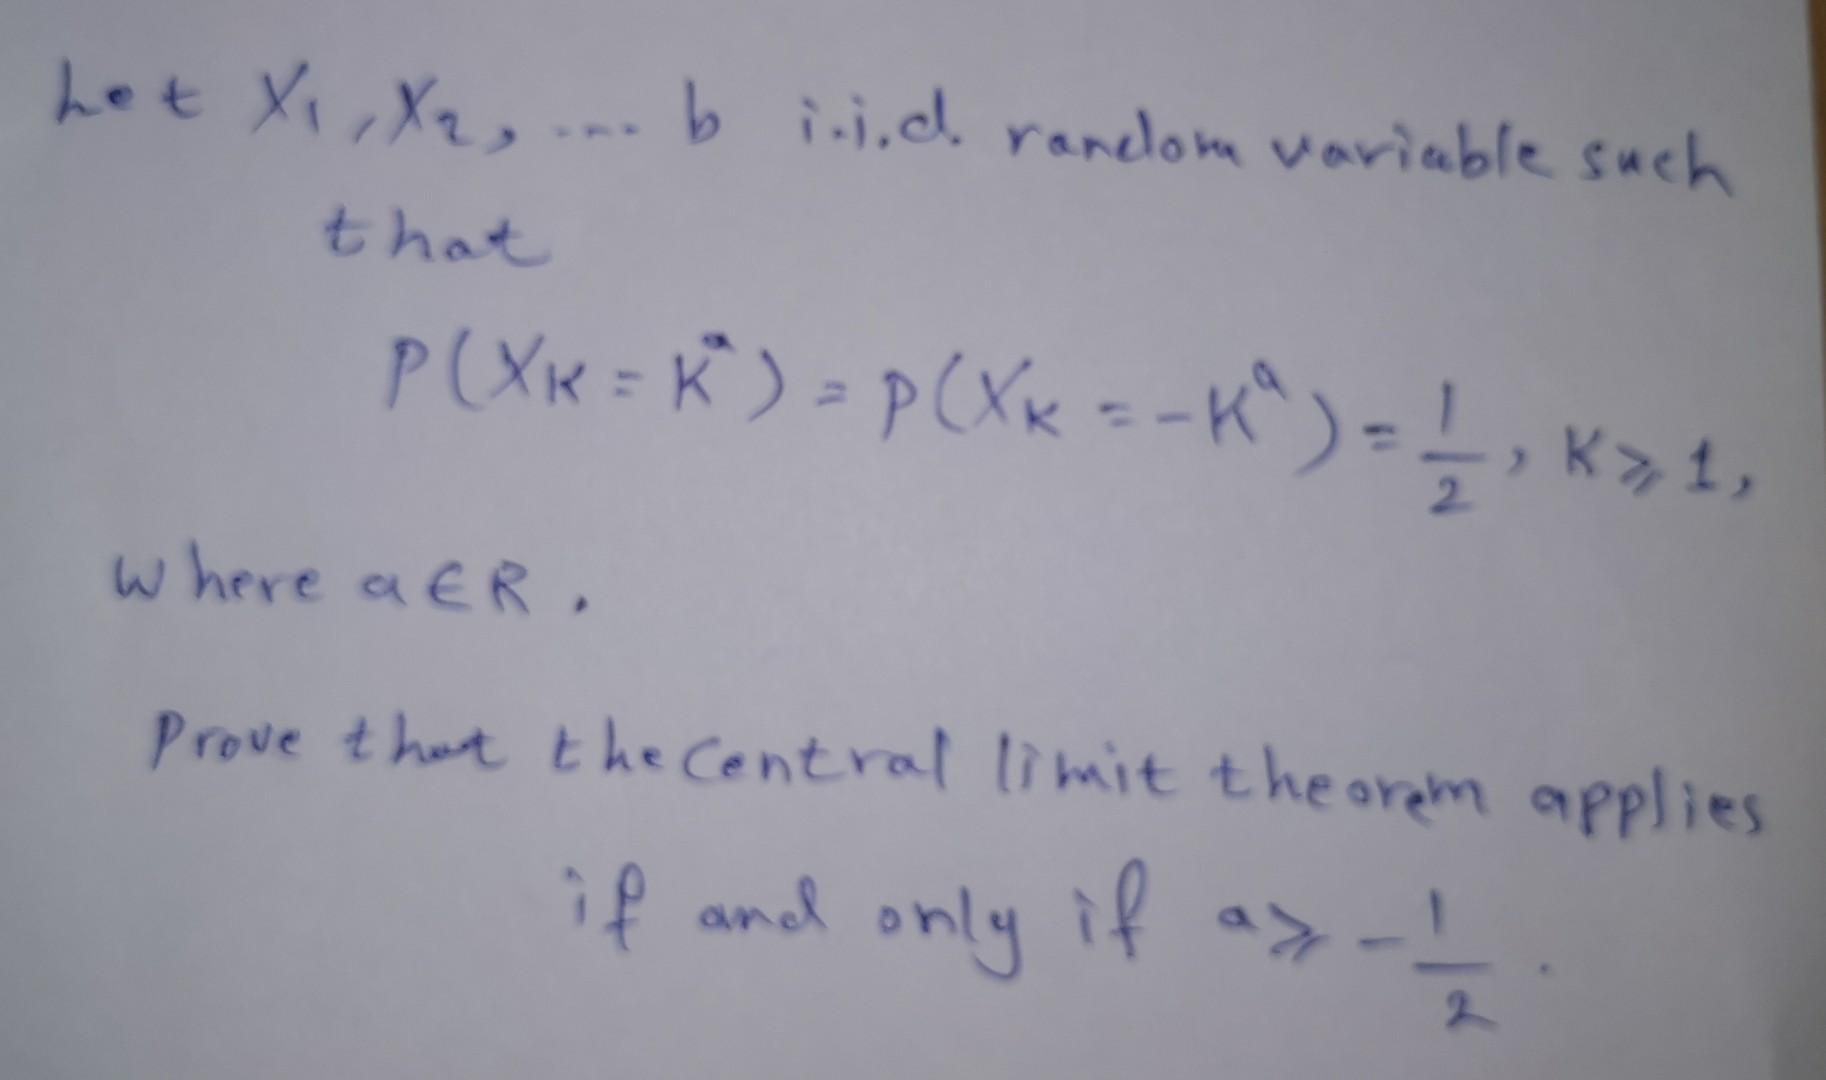 Let X₁, X₂, .... b i.i.d. random variable such
that
P(X_K = K^a) = P(X_K = -K^a) = 1/2, K ≥ 1,
Where a ∈ R.
Prove that the Central limit theorem applies
if and only if a ≥ -1/2.